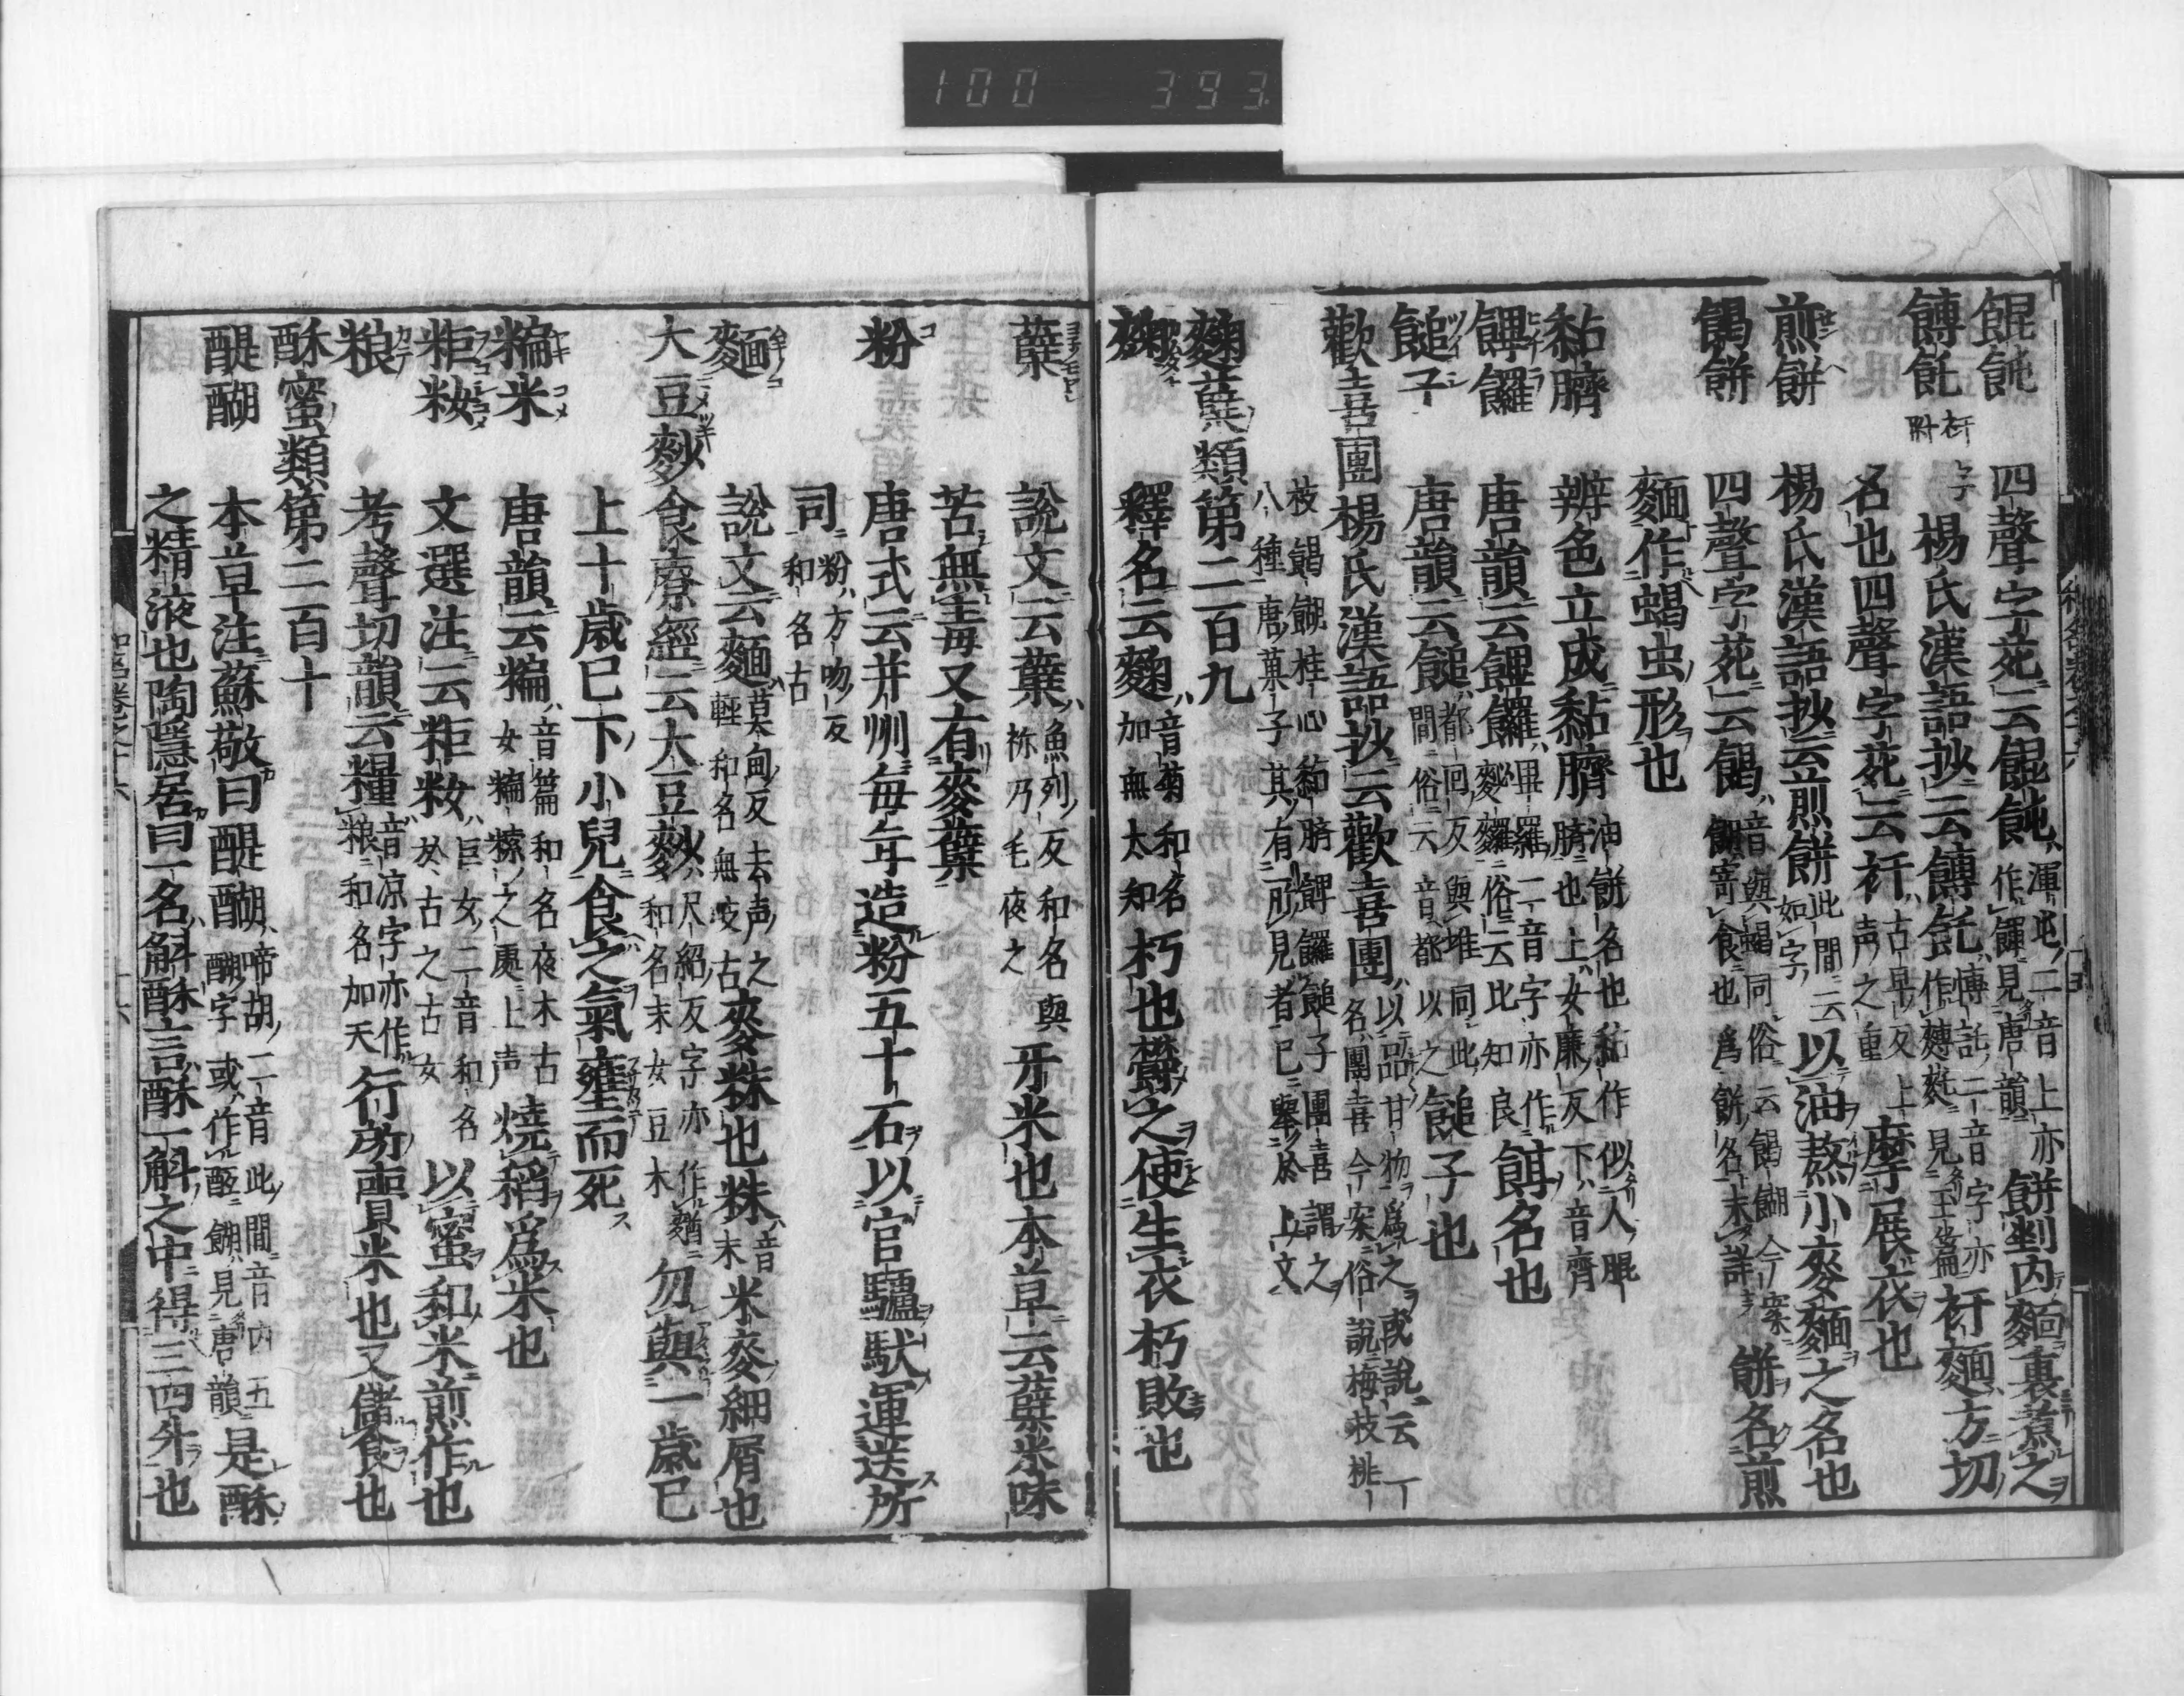 100 393
餛飩 四聲字苑云餛飩渾屯二音上亦作餫見唐韻餅剉肉麵裹煮之
餺飥 衦附 楊氏漢語抄云餺飥博託二音字亦作𪍡䴽見玉篇衦麵方切
名也四聲字苑云衦古旱反上声之重摩展衣也
煎餅 楊氏漢語抄云煎餅此間云如字以油熬小麥麵之名也
餲餅 四聲字苑云餲音與蝎同俗云餲餬今案餬寄食也為餅名未詳餅名煎
麵作蝎虫形也
黏臍 辨色立成云黏臍油餅名也黏作似人腥臍也上女廉反下音齊
饆饠 唐韻云饆饠畢羅二音字亦作䴶䊨俗云比知良餌名也
䭔子 唐韻云䭔都回反與堆同此間俗云音都以之䭔子也
歡喜團 楊氏漢語抄云歡喜團以品甘物爲之或說云一名團喜今案俗說梅枝桃
枝餲餬桂心黏臍饆饠䭔子團喜謂之八種唐菓子其有所見者已擧於上文
麴糵類第二百九
麴 釋名云麴音菊和名加無太知朽也鬱之使生衣朽敗也
糵 說文云糵魚列反和名與祢乃毛夜之牙米也本草云糵米味
苦無毒又有麥糵
粉 唐式云并州每年造粉五十石以官驢馱運送所
司粉方吻反和名古
麵 說文云麵莫甸反去声之輕和名無岐古麥䴲也䴲音末米麥細屑也
大豆麨 食療經云大豆麨尺紹反字亦作麵和名末女豆木勿與一歲已
上十歲已下小兒食之氣壅而死
糄米 唐韻云糄音篇和名夜木古女糄䊩之處上声燒稻爲米也
粔籹 文選注云粔籹巨女二音和名於古之古女以蜜和米煎作也
粮 考聲切韻云糧音凉字亦作粮和名加天行所賷米也又儲食也
酥蜜類第二百十
醍醐 本草注蘇敬曰醍醐啼胡二音此間音内五醐字或作䣺餬見唐韻是酥
之精液也陶隱居曰一名斛酥言酥一斛之中得三四升也